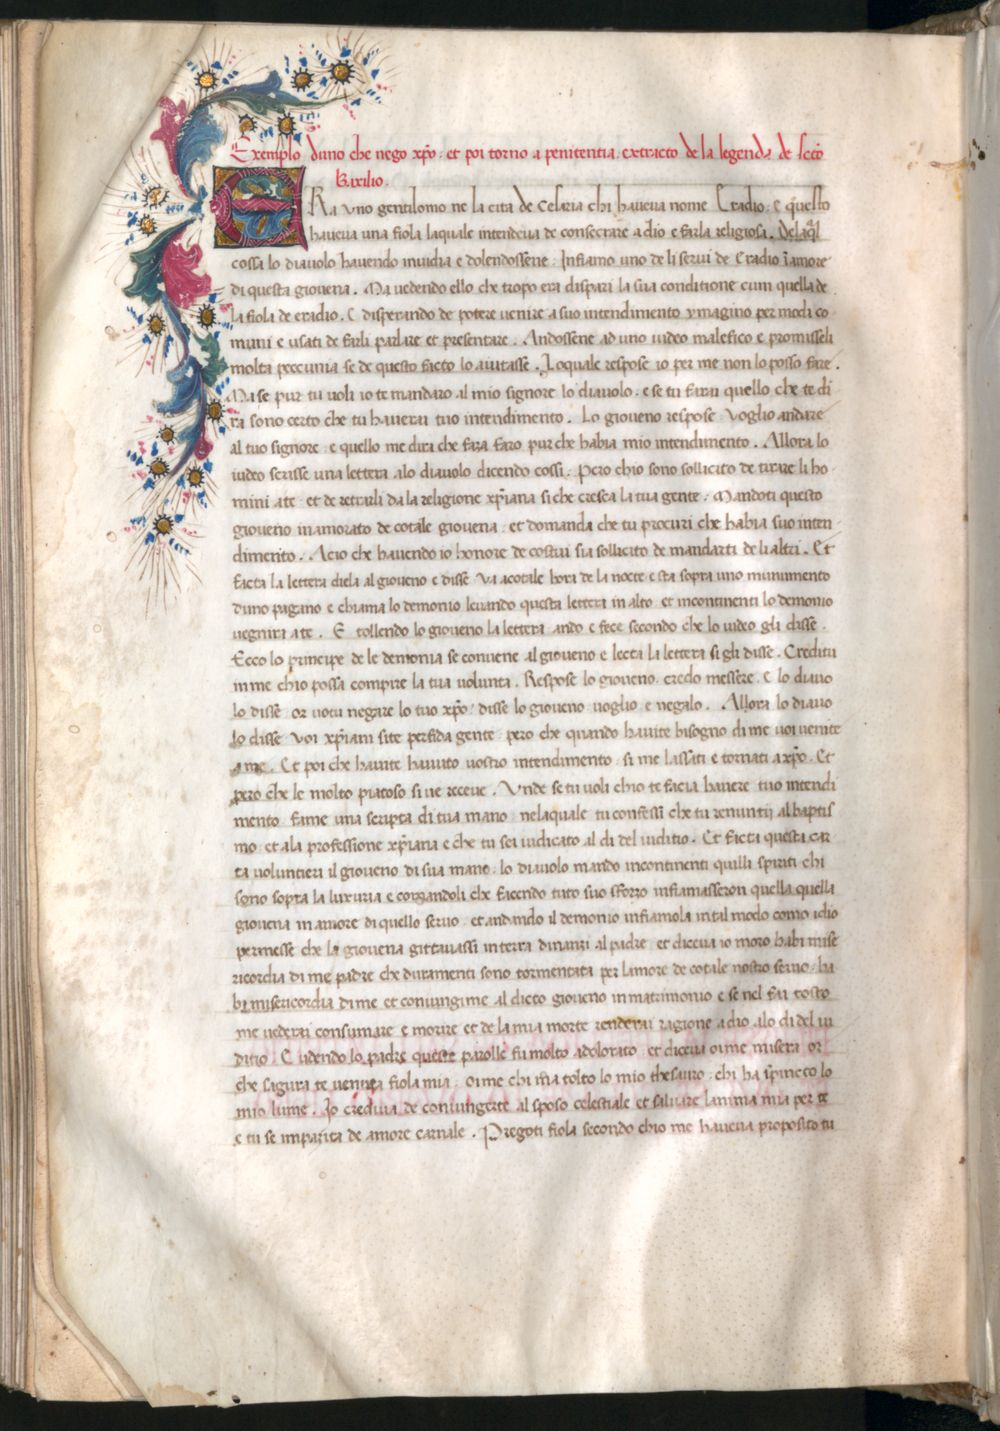 Exemplo duno che nego xp̄o · et poi torno a penitentia · extracto de la legenda de scto
Baxilio ·
ERa uno gentilomo ne la cita de Cesaria chi haveva nome Eradio · e questo
haveva una fiola laquale intendeva de consecrare a dio e farla religiosa . Delaq̄l
cossa lo diavolo havendo invidia e dolendossene · Infiamo uno de li servi de Eradio ī amore
di questa giovena . Ma vedendo ello che tropo era dispari la sua conditione cum quella de
la fiola de eradio . E disperando de potere venire a suo intendimento ymagino per modi co
muni e usati de farli parlare et presentare . Andossene ad uno iudeo malefico e promisseli
molta peccunia se de questo facto lo aiutasse . Loquale respose io per me non lo posso fare .
Ma se pur tu voli io te mandaro al mio signore lo diavolo · e se tu farai quello che te di
ra sono certo che tu haverai tuo intendimento . Lo gioveno respose · voglio andare
al tuo signore · e quello me dira che faza faro pur che habia mio intendimento . Allora lo
iudeo scrisse una lettera alo diavolo dicendo cossi · Pero chio sono sollicito de tirare li ho
mini a te · et de retrarli da la religione xp̄iana si che cresca la tua gente · Mandoti questo
gioveno inamorato de cotale giovena · et domanda che tu procuri che habia suo inten
dimento . Acio che havendo io honore de costui sia sollicito de mandarti de li altri . Et
facta la lettera diela al gioveno e disse va a cotale hora de la nocte e sta sopra uno munumento
duno pagano e chiama lo demonio levando questa lettera in alto · et incontinenti lo demonio
vegnira a te . E tollendo lo gioveno la lettera ando e fece secondo che lo iudeo gli disse .
Ecco lo principe de le demonia se convene al gioveno e lecta la lettera si gli disse . Creditu
in me chio possa compire la tua volunta . Respose lo gioveno · credo messere . E lo diavo
lo disse or votu negare lo tuo xp̄o · disse lo gioveno voglio e negalo . Allora lo diavo
lo disse voi xp̄iani site perfida gente · pero che quando havite bisogno di me voi venite
a me . Et poi che havite havuto vostro intendimento · si me lassati e tornati a xp̄o . Et
pero che le molto piatoso si ve receve . Unde se tu voli chio te facia havere tuo intendi
mento fame una scripta di tua mano nelaquale tu confessi che tu renuntij al baptis
mo et ala professione xp̄iana e che tu sei iudicato al di del iuditio . Et facta questa car
ta voluntieri il gioveno di sua mano · lo diavolo mando incontinenti quilli spiriti chi
sono sopra la luxuria e comandoli che facendo tuto suo sforzo infiamasseron quella quella
giovena in amore di quello servo · et andando il demonio infiamola in tal modo como idio
permesse che la giovena gittavassi in terra dinanzi al padre · et diceva io moro habi mise
ricordia di me padre che duramenti sono tormentata per lamore de cotale nostro servo · ha
bi misericordia di me et coniungime al dicto gioveno in matrimonio e se nol fai tosto
me vederai consumare e morire et de la mia morte renderai ragione a dio alo di del iu
ditio . E udendo lo padre queste parolle fu molto adolorato · et diceva oime misera or
che sagura te venuta fiola mia · oime chi ma tolto lo mio thesauro · chi ha spincto lo
mio lume . Io credeva de coniungerte al sposo celestiale et salvare lanima mia per te
e tu se imparita de amore carnale . Pregoti fiola secondo chio me haveva proposito tu